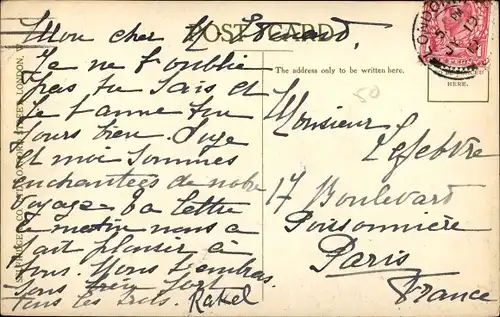 POST CARD
Mon cher M
Je ne t'oublie
pas, tu sais et
je t'aime tou
jours bien.
et moi sommes
enchantées de notre
voyage. Ta lettre
ce matin nous a
fait plaisir à
tous. Nous t'embras
sons bien fort
tous les trois. Rakel
The address only to be written here.
HERE.
50
Monsieur
Lefebvre
17 Boulevard
Poissonnière
Paris
France
LONDON